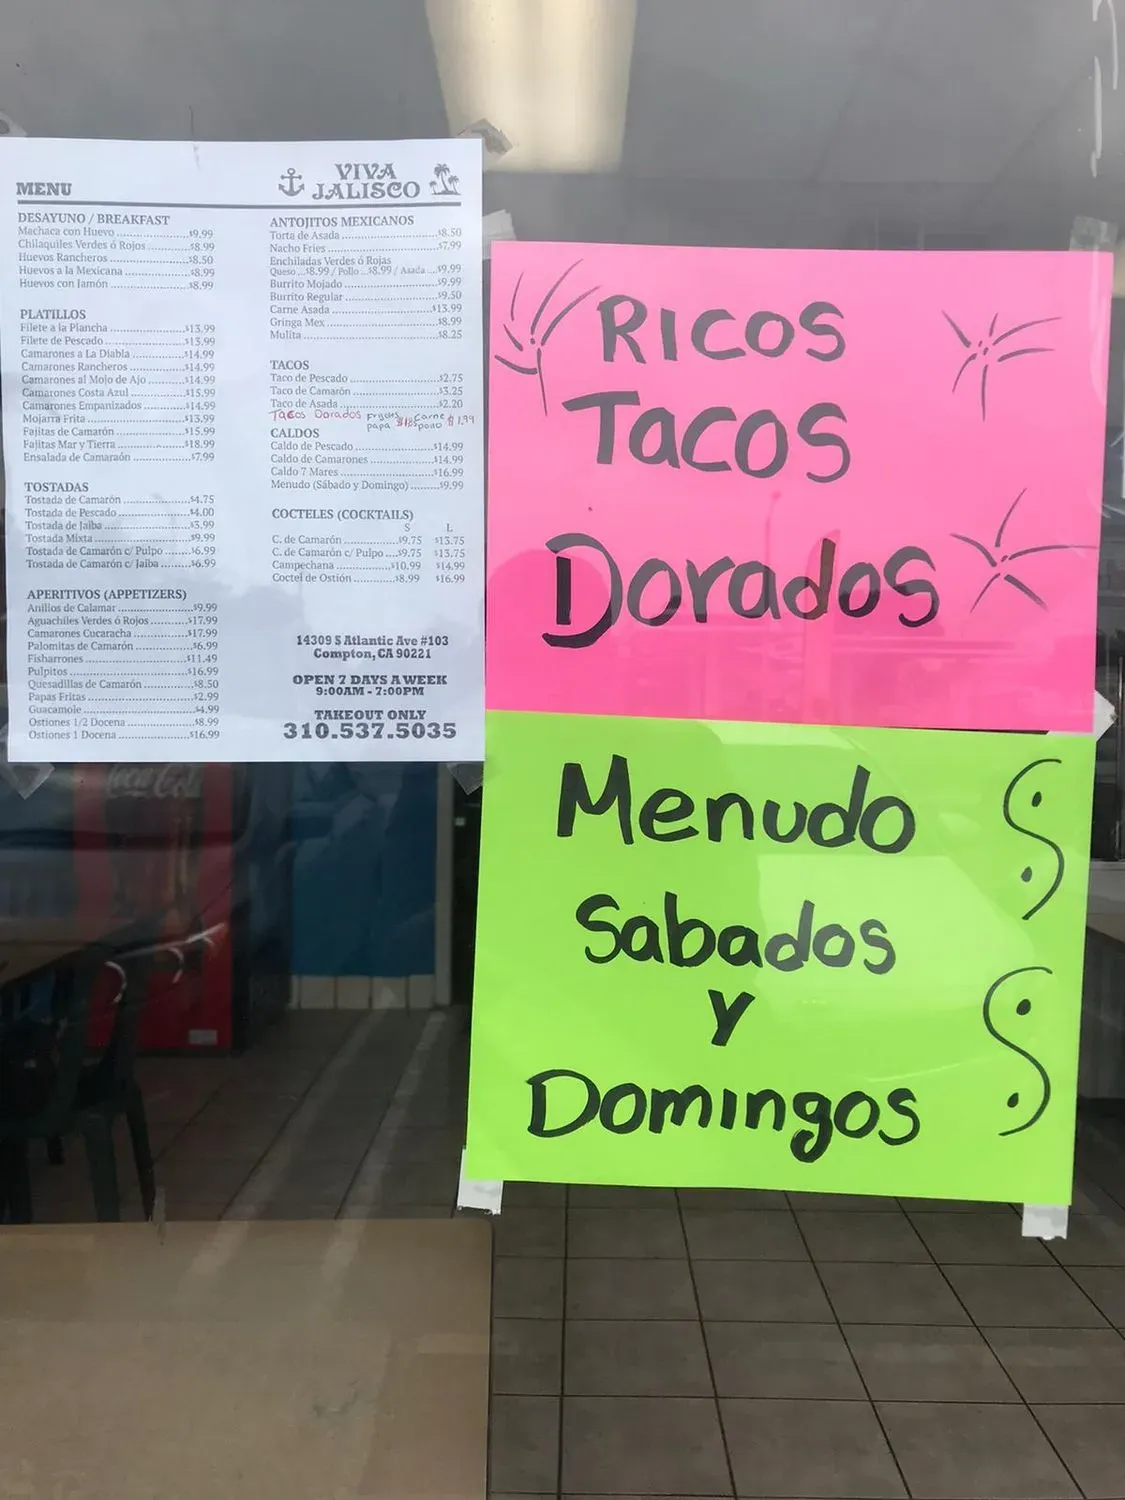 MENU
VIVA
JALISCO
DESAYUNO / BREAKFAST
Machaca con Huevo ... $9.99
Chilaquiles Verdes ó Rojos ... $8.99
Huevos Rancheros ... $8.50
Huevos a la Mexicana ... $8.99
Huevos con Jamón ... $8.99
PLATILLOS
Filete a la Plancha ... $13.99
Filete de Pescado ... $13.99
Camarones a La Diabla ... $14.99
Camarones Rancheros ... $14.99
Camarones al Mojo de Ajo ... $14.99
Camarones Costa Azul ... $15.99
Camarones Empanizados ... $14.99
Mojarra Frita ... $13.99
Fajitas de Camarón ... $15.99
Fajitas Mar y Tierra ... $18.99
Ensalada de Camaraón ... $7.99
TOSTADAS
Tostada de Camarón ... $4.75
Tostada de Pescado ... $4.00
Tostada de Jaiba ... $3.99
Tostada Mixta ... $9.99
Tostada de Camarón c/ Pulpo ... $6.99
Tostada de Camarón c/ Jaiba ... $6.99
APERITIVOS (APPETIZERS)
Anillos de Calamar ... $9.99
Aguachiles Verdes ó Rojos ... $17.99
Camarones Cucaracha ... $17.99
Palomitas de Camarón ... $6.99
Fisharrones ... $11.49
Pulpitos ... $16.99
Quesadillas de Camarón ... $8.50
Papas Fritas ... $2.99
Guacamole ... $4.99
Ostiones 1/2 Docena ... $8.99
Ostiones 1 Docena ... $16.99
ANTOJITOS MEXICANOS
Torta de Asada ... $8.50
Nacho Fries ... $7.99
Enchiladas Verdes ó Rojas
Queso ... $8.99 / Pollo ... $8.99 / Asada ... $9.99
Burrito Mojado ... $9.99
Burrito Regular ... $9.50
Carne Asada ... $13.99
Gringa Mex ... $8.99
Mulita ... $8.25
TACOS
Taco de Pescado ... $2.75
Taco de Camarón ... $3.25
Taco de Asada ... $2.20
Tacos Dorados papa carne pollo $1.99
CALDOS
Caldo de Pescado ... $14.99
Caldo de Camarones ... $14.99
Caldo 7 Mares ... $16.99
Menudo (Sábado y Domingo) ... $9.99
COCTELES (COCKTAILS)
S L
C. de Camarón ... $9.75 $13.75
C. de Camarón c/ Pulpo ... $9.75 $13.75
Campechana ... $10.99 $14.99
Coctel de Ostión ... $8.99 $16.99
14309 S Atlantic Ave #103
Compton, CA 90221
OPEN 7 DAYS A WEEK
9:00AM - 7:00PM
TAKEOUT ONLY
310.537.5035
RICOS
TACOS
DORADOS
Menudo
Sabados
y
Domingos
Coca Cola